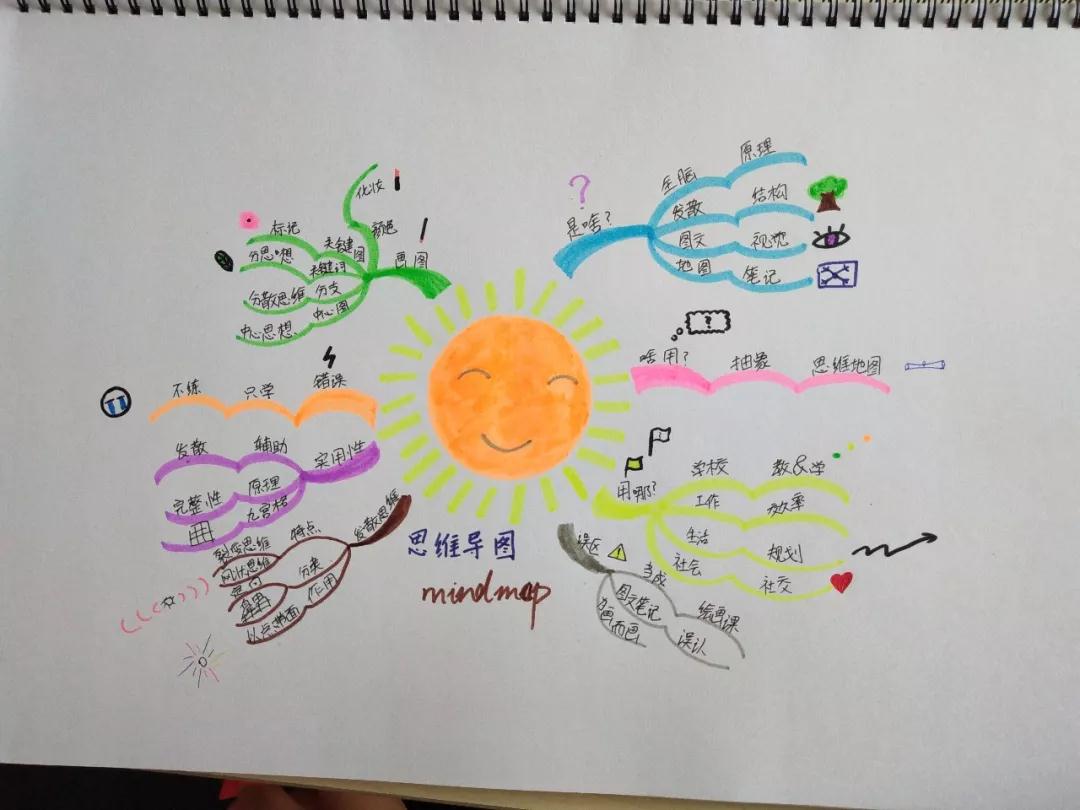 思维导图
mindmap
是啥?
全脑
原理
发散
结构
图文
视觉
地图
笔记
?
啥用?
抽象
思维地图
?
用哪?
学校
教&学
工作
效率
生活
规划
社会
社交
误区
!
当成
绘画课
图文笔记
误认
为画而画
发散思维
特点
分类
作用
网状思维
以点带面
实用性
辅助
发散
原理
完整性
九宫格
错误
只学
不练
画图
颜色
化妆
关键图
标记
关键词
分支
分散思维
中心图
中心思想